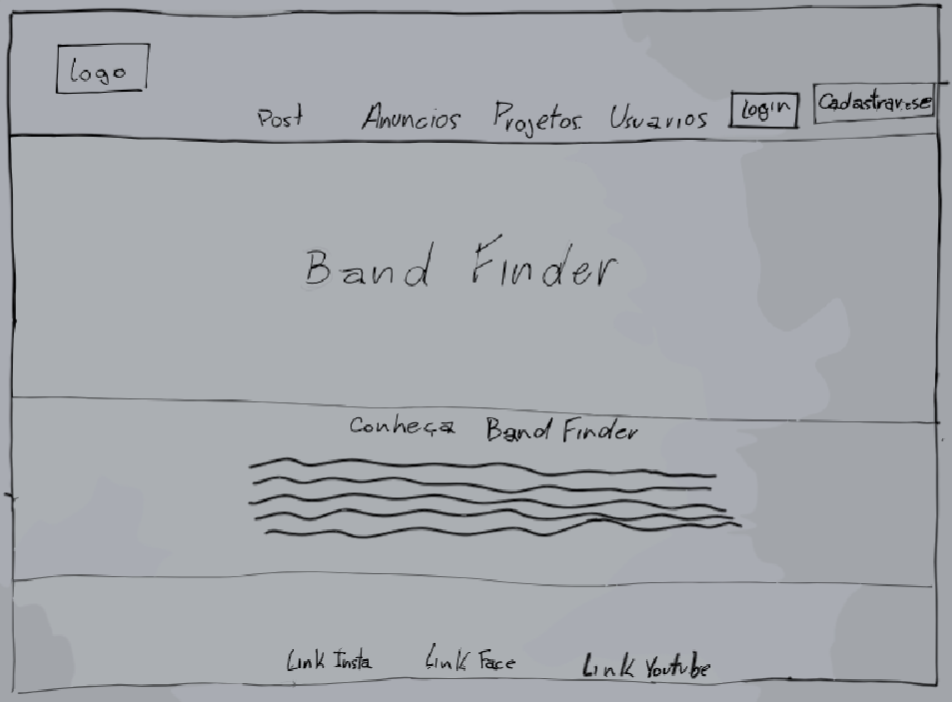 Logo
Post Anuncios Projetos Usuarios Login Cadastrar-se
Band Finder
Conheça Band Finder
Link Insta Link Face Link Youtube